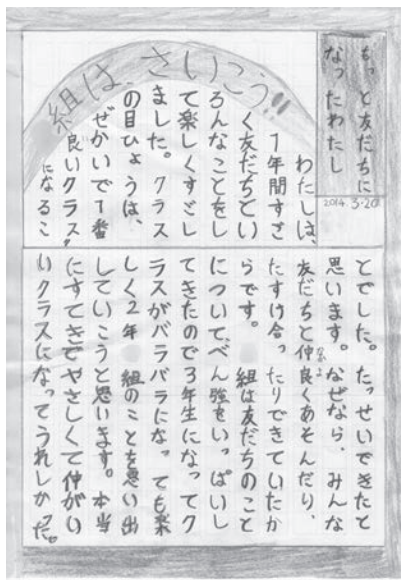 もっと友だちに
なったわたし
2014.3.20
組はさいこう!!
わたしは、
1年間すざ
く友だちとい
ろんなことをし
て楽しくすごし
ました。クラス
の目ひょうは、
“せかいで1番
良いクラス”
になるこ
とでした。たっせいできたと
思います。なぜなら、みんな
友だちと仲良くあそんだり、
たすけ合ったりできていたか
らです。 組は友だちのこと
についてべん強をいっぱいし
てきたので3年生になってク
ラスがバラバラになっても楽
しく2年 組のことを思い出
していこうと思います。本当
にすてきでやさしくて仲がい
いクラスになってうれしかった。